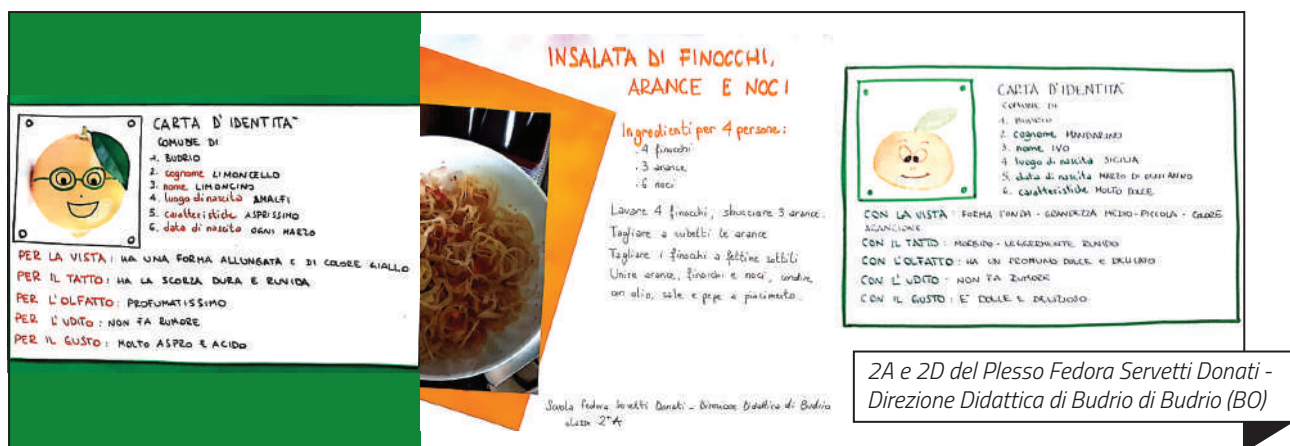 CARTA D'IDENTITA'
COMUNE DI
1. BUDRIO
2. cognome LIMONCELLO
3. nome LIMONCINO
4. luogo di nascita AMALFI
5. caratteristiche ASPRISSIMO
6. data di nascita OGNI MARZO
PER LA VISTA: HA UNA FORMA ALLUNGATA E DI COLORE GIALLO
PER IL TATTO: HA LA SCORZA DURA E RUVIDA
PER L'OLFATTO: PROFUMATISSIMO
PER L'UDITO: NON FA RUMORE
PER IL GUSTO: MOLTO ASPRO E ACIDO
INSALATA DI FINOCCHI,
ARANCE E NOCI
Ingredienti per 4 persone:
. 4 finocchi
. 3 arance
. 6 noci
Lavare 4 finocchi, sbucciare 3 arance.
Tagliare a cubetti le arance
Tagliare i finocchi a fettine sottili
Unire arance, finocchi e noci, condire
con olio, sale e pepe a piacimento.
Scuola Fedora Servetti Donati - Direzione Didattica di Budrio
classe 2ª A
CARTA D'IDENTITA'
COMUNE DI
1. BUDRIO
2. cognome MANDARINO
3. nome IVO
4. luogo di nascita SICILIA
5. data di nascita MARZO DI OGNI ANNO
6. caratteristiche MOLTO DOLCE
CON LA VISTA: FORMA TONDA - GRANDEZZA MEDIO-PICCOLA - COLORE
ARANCIONE
CON IL TATTO: MORBIDO - LEGGERMENTE RUVIDO
CON L'OLFATTO: HA UN PROFUMO DOLCE E DELICATO
CON L'UDITO - NON FA RUMORE
CON IL GUSTO: E' DOLCE E DELIZIOSO
2A e 2D del Plesso Fedora Servetti Donati -
Direzione Didattica di Budrio di Budrio (BO)